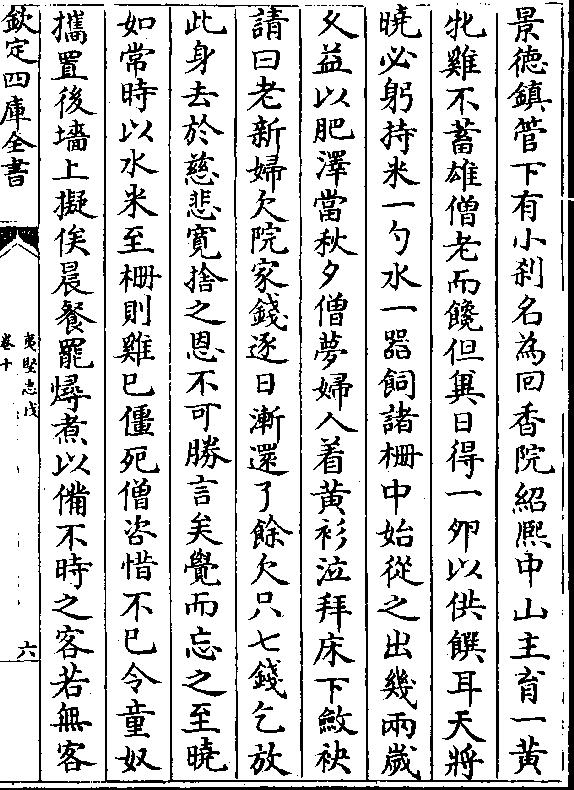 景德鎮管下有小刹名為回香院紹熈中山主育一黄
牝雞不蓄雄僧老而饞但兾日得一夘以供饌耳天將
曉必躬持米一勺水一器飼諸柵中始從之出幾兩嵗
乆益以肥澤當秋夕僧夢婦人着黄衫泣拜床下斂袂
請曰老新婦欠院家錢逐日漸還了餘欠只七錢乞放
此身去於慈悲寛捨之恩不可勝言矣覺而忘之至曉
如常時以水米至柵則雞已僵死僧咨惜不已令童奴
攜置後墻上擬俟晨餐罷燖煮以備不時之客若無客
欽定四庫全書
夷堅志戊
卷十
六